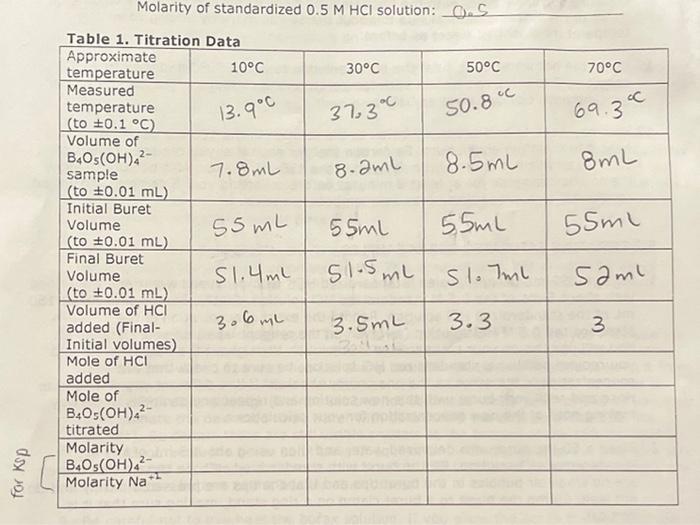 Molarity of standardized 0.5 M HCl solution: 0.5
Table 1. Titration Data
Approximate temperature 10°C 30°C 50°C 70°C
Measured temperature (to ±0.1 °C) 13.9°C 37.3°C 50.8°C 69.3°C
Volume of B₄O₅(OH)₄²⁻ sample (to ±0.01 mL) 7.8mL 8.2mL 8.5mL 8mL
Initial Buret Volume (to ±0.01 mL) 55mL 55mL 55mL 55mL
Final Buret Volume (to ±0.01 mL) 51.4mL 51.5mL 51.7mL 52mL
Volume of HCl added (Final-Initial volumes) 3.6mL 3.5mL 3.3 3
Mole of HCl added
Mole of B₄O₅(OH)₄²⁻ titrated
Molarity B₄O₅(OH)₄²⁻
Molarity Na⁺¹
for Ksp